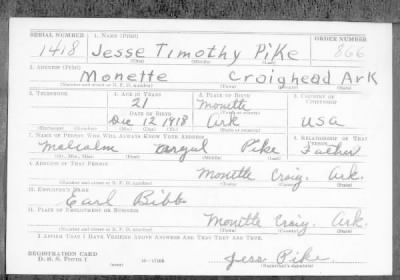 SERIAL NUMBER 1. NAME (Print) ORDER NUMBER
1418 Jesse Timothy Pike 866
(First) (Middle) (Last)
2. ADDRESS (Print)
Monette Craighead Ark
(Number and street or R. F. D. number) (Town) (County) (State)
3. TELEPHONE 4. AGE IN YEARS 5. PLACE OF BIRTH 6. COUNTRY OF CITIZENSHIP
21 Monette
DATE OF BIRTH (Town or county)
Dec 12 1918 Ark USA
(Exchange) (No.) (Mo.) (Day) (Yr.) (State or country)
7. NAME OF PERSON WHO WILL ALWAYS KNOW YOUR ADDRESS 8. RELATIONSHIP OF THAT PERSON
Malcolm Pike Father
(Mr., Mrs., Miss) (First) (Middle) (Last)
9. ADDRESS OF THAT PERSON
Monette Craig. Ark.
(Number and street or R. F. D. number) (Town) (County) (State)
10. EMPLOYER'S NAME
Earl Bibb
11. PLACE OF EMPLOYMENT OR BUSINESS
Monette Craig. Ark.
(Number and street or R. F. D. number) (Town) (County) (State)
I AFFIRM THAT I HAVE VERIFIED ABOVE ANSWERS AND THAT THEY ARE TRUE.
REGISTRATION CARD
D. S. S. FORM 1 16—17105 Jess Pike
(over) (Registrant's signature)